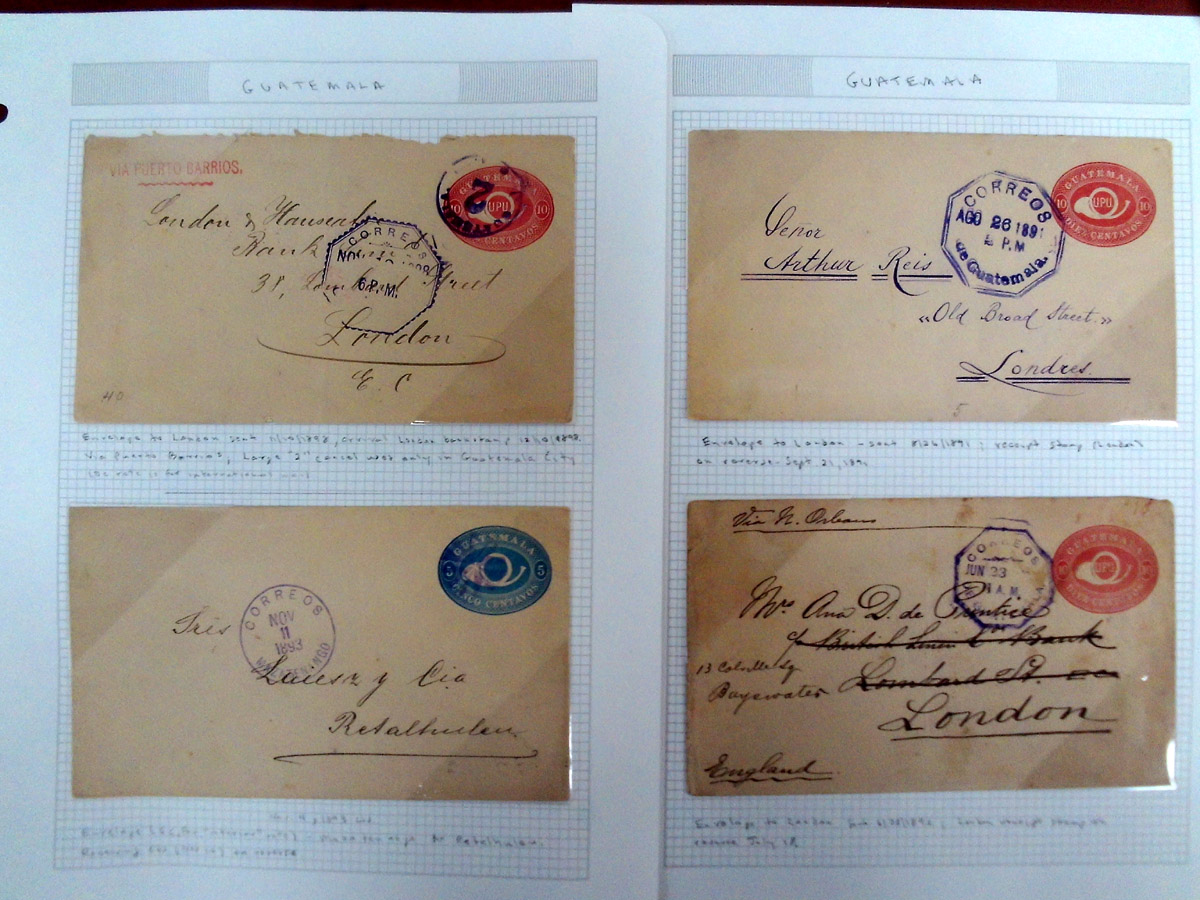 GUATEMALA
VIA PUERTO BARRIOS.
2
GUATEMALA
10 UPU 10
CENTAVOS
London & Hanseatic
Bank
CORREOS
NOV
6 P.M.
38, Lombard Street
London
E. C
40
Envelope to London sent 11/10/1898, arrival London backstamp 12/10/1898.
Via Puerto Barrios, Large "2" cancel was only in Guatemala City
10c rate is for international mail
GUATEMALA
5 5
CINCO CENTAVOS
CORREOS
NOV
11
1893
MAZATENANGO
Sres
y Cia
Retalhuleu
Envelope "interior" Mazatenango to Retalhuleu.
on reverse
GUATEMALA
GUATEMALA
10 UPU 10
DIEZ CENTAVOS
CORREOS
AGO 26 1891
P.M
de Guatemala.
Señor
Arthur Reis
«Old Broad Street.»
Londres.
5
Envelope to London - sent 8/26/1891; receipt stamp (London)
on reverse - Sept. 21, 1891
Via N. Orleans
GUATEMALA
UPU
DIEZ CENTAVOS
CORREOS
JUN 23
A.M.
Mrs Ana D. de Prentice
c/o British Linen Bank
13 Colville Sq.
Bayswater Lombard St.
London
England
Envelope to London London receipt stamp on
reverse July 18